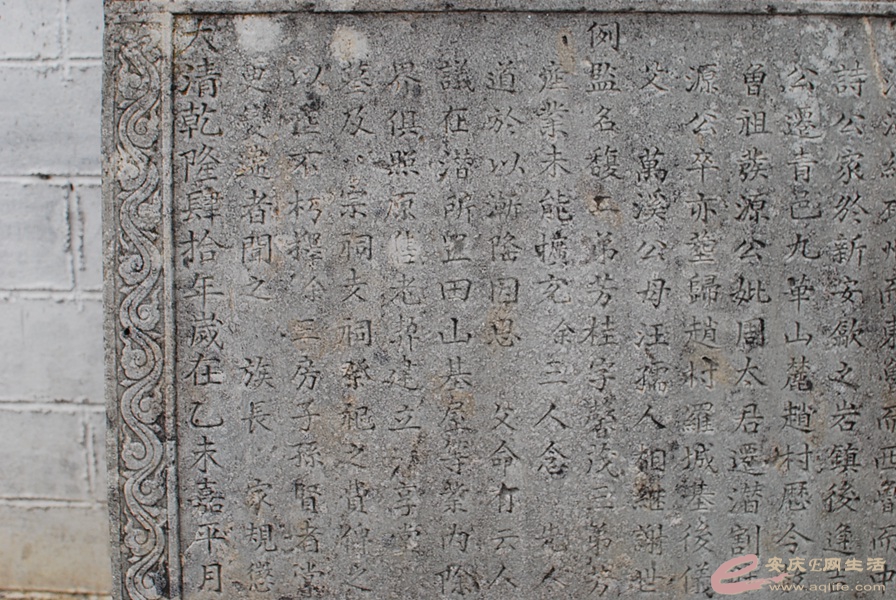 詩公家於新安歙之岩鎮後
公遷青邑九華山麓趙村歷今
曾祖發源公妣周太君遷潛割
源公卒亦塟歸趙村羅城基後儀
父 萬溪公母汪孺人相繼謝世
例監名馥二弟芳桂字馨茂三弟芳
產業未能擴充 余三人念 先人
道於以漸隆因思 父命有云人
議在潛所置田山基屋等業內除
界俱照原售老契建立 享堂
墓及 宗祠支祠祭祀之費俾之
以垂不朽擇余三房子孫賢者掌
更變 者聞之 族長 家規懲
大清乾隆肆拾年歲在乙未嘉平月
安庆E网生活
www.aqlife.com